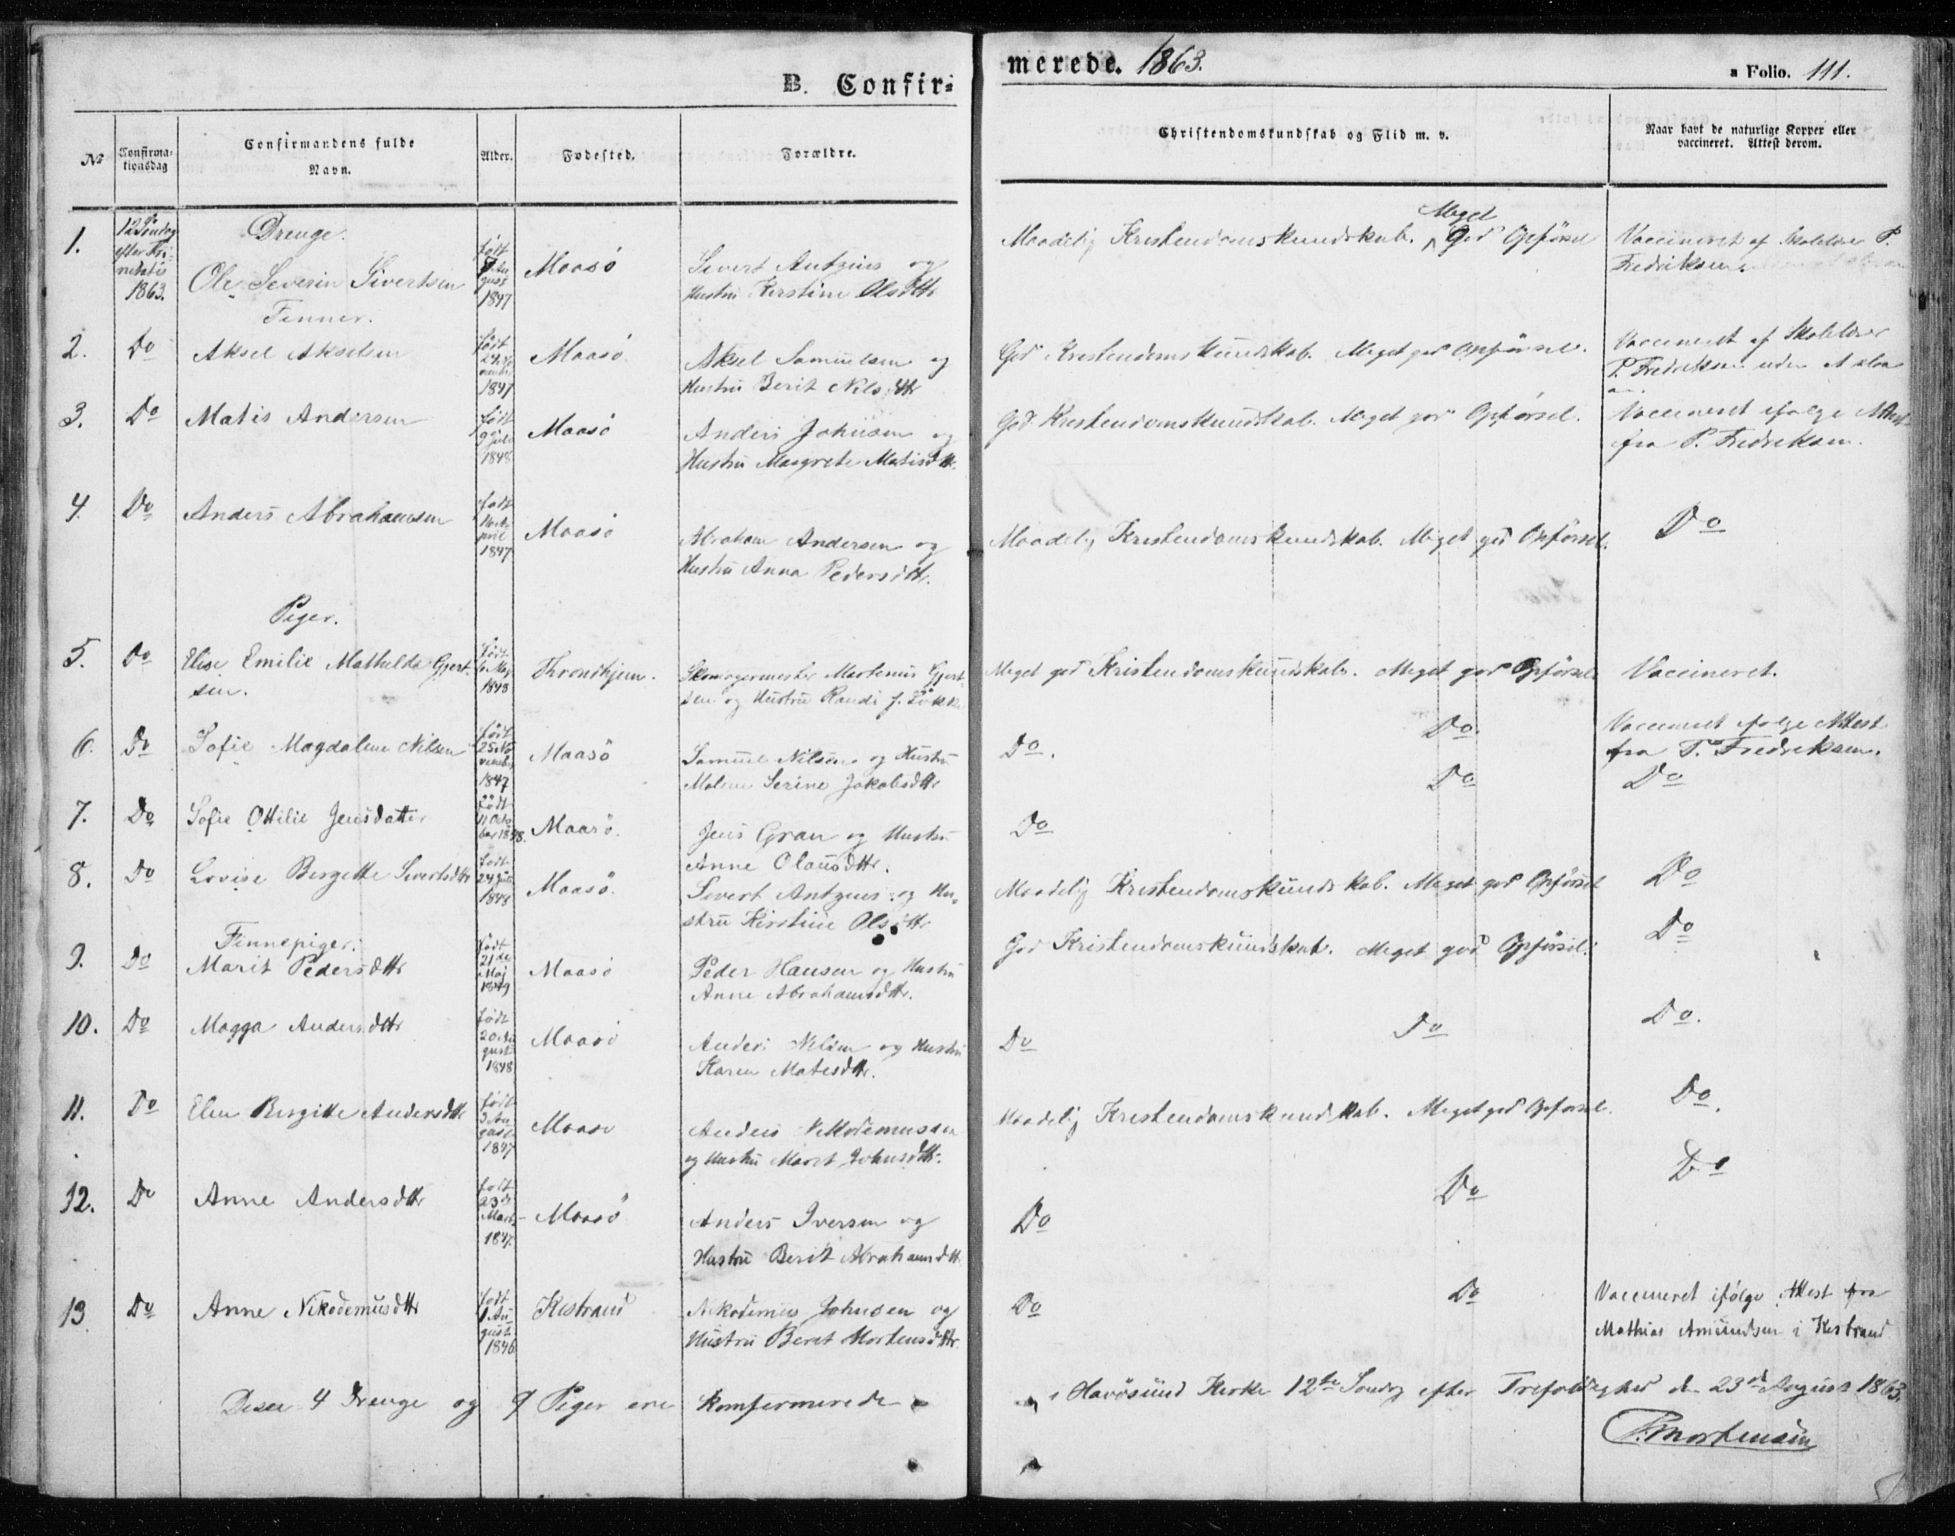 B. Confir-
merede. 1863.
a Folio. 111.
No
Confirma-
tionsdag
Confirmandens fulde
Navn.
Alder.
Fødested.
Forældre.
Christendomskundskab og Flid m. v.
Naar havt de naturlige Kopper eller
vaccineret. Attest derom.
1.
12 Søndag
efter Tri-
nitatis
1863.
Drenge.
Ole Severin Sivertsen
født
August
1847
Maasö
Sivert Antzius og
Hustru Kirstine Olsdttr
Maadelig Kristendomskundskab. Meget God Opförsel
Vaccineret af Skolelærer P.
Fredriksen
Finner.
2.
Do
Aksel Akselsen
født
1847
Maasö
Aksel Samuelsen og
Hustru Berit Nilsdttr
God Kristendomskundskab. Meget god Opförsel.
Vaccineret af Skolelærer
P. Fredriksen uden
3.
Do
Matis Andersen
født
9 Juli
1848
Maasö
Anders Johnsen og
Hustru Margrete Matisdttr.
God Kristendomskundskab. Meget god Opförsel.
Vaccineret ifölge Attest
fra P. Fredriksen.
4.
Do
Anders Abrahamsen
født
April
1847
Maasö
Abraham Andersen og
Hustru Anna Pedersdttr.
Maadelig Kristendomskundskab. Meget god Opförsel.
Do
Piger.
5.
Do
Elise Emilie Mathilde Gjert-
sen.
født
6 Maj
1848
Throndhjem.
Skomagermester Martenius Gjert-
sen og Hustru Randi J. Lökke
Meget god Kristendomskundskab. Meget god Opförsel
Vaccineret.
6.
Do
Sofie Magdalene Nilsen
født
25 No-
vember
1847
Maasö
Samuel Nilsen og Hustru
Malene Serine Jakobsdttr
Do.
Do.
Vaccineret ifölge Attest
fra P. Fredriksen.
7.
Do
Sofie Ottilie Jensdatter
født
11 Octo-
ber 1848.
Maasö.
Jens Gran og Hustru
Anne Olausdttr.
Do
Do
Do
8.
Do
Lovise Bergitte Sivertsdttr
født
24 Juli
1848
Maasö.
Sivert Antzius og Hu-
stru Kirstine Olsdttr
Maadelig Kristendomskundskab. Meget god Opförsel
Do
Finnepiger.
9.
Do
Marit Pedersdttr
født
21de
Maj
1849
Maasö
Peder Hansen og Hustru
Anne Abrahamsdttr.
God Kristendomskundskab. Meget god Opförsel.
Do
10.
Do
Magga Andersdttr
født
20 Au-
gust
1848
Maasö
Anders Nilsen og Hustru
Karen Matisdttr.
Do
Do
Do.
11.
Do
Elen Bergitte Andersdttr
født
3 Au-
gust
1847
Maasö
Anders Nikodemussen
og Hustru Maret Johnsdttr.
Maadelig Kristendomskundskab. Meget god Opförsel.
Do.
12.
Do
Anne Andersdttr
født
23de
Marts
1847.
Maasö
Anders Iversen og
Hustru Berit Abrahamsdttr.
Do
Do
Do
13
Do
Anne Nikodemusdttr
født
1 Au-
gust
1846
Kistrand
Nikodemus Johnsen og
Hustru Beret Mortensdttr.
Do
Do
Vaccineret ifölge Attest fra
Mathias Amundsen i Kistrand
Disse 4 Drenge og 9 Piger ere Konfermerede i Havösund Kirke 12te Söndag efter Trefoldighed den 23de August 1863.
P. Mortensen